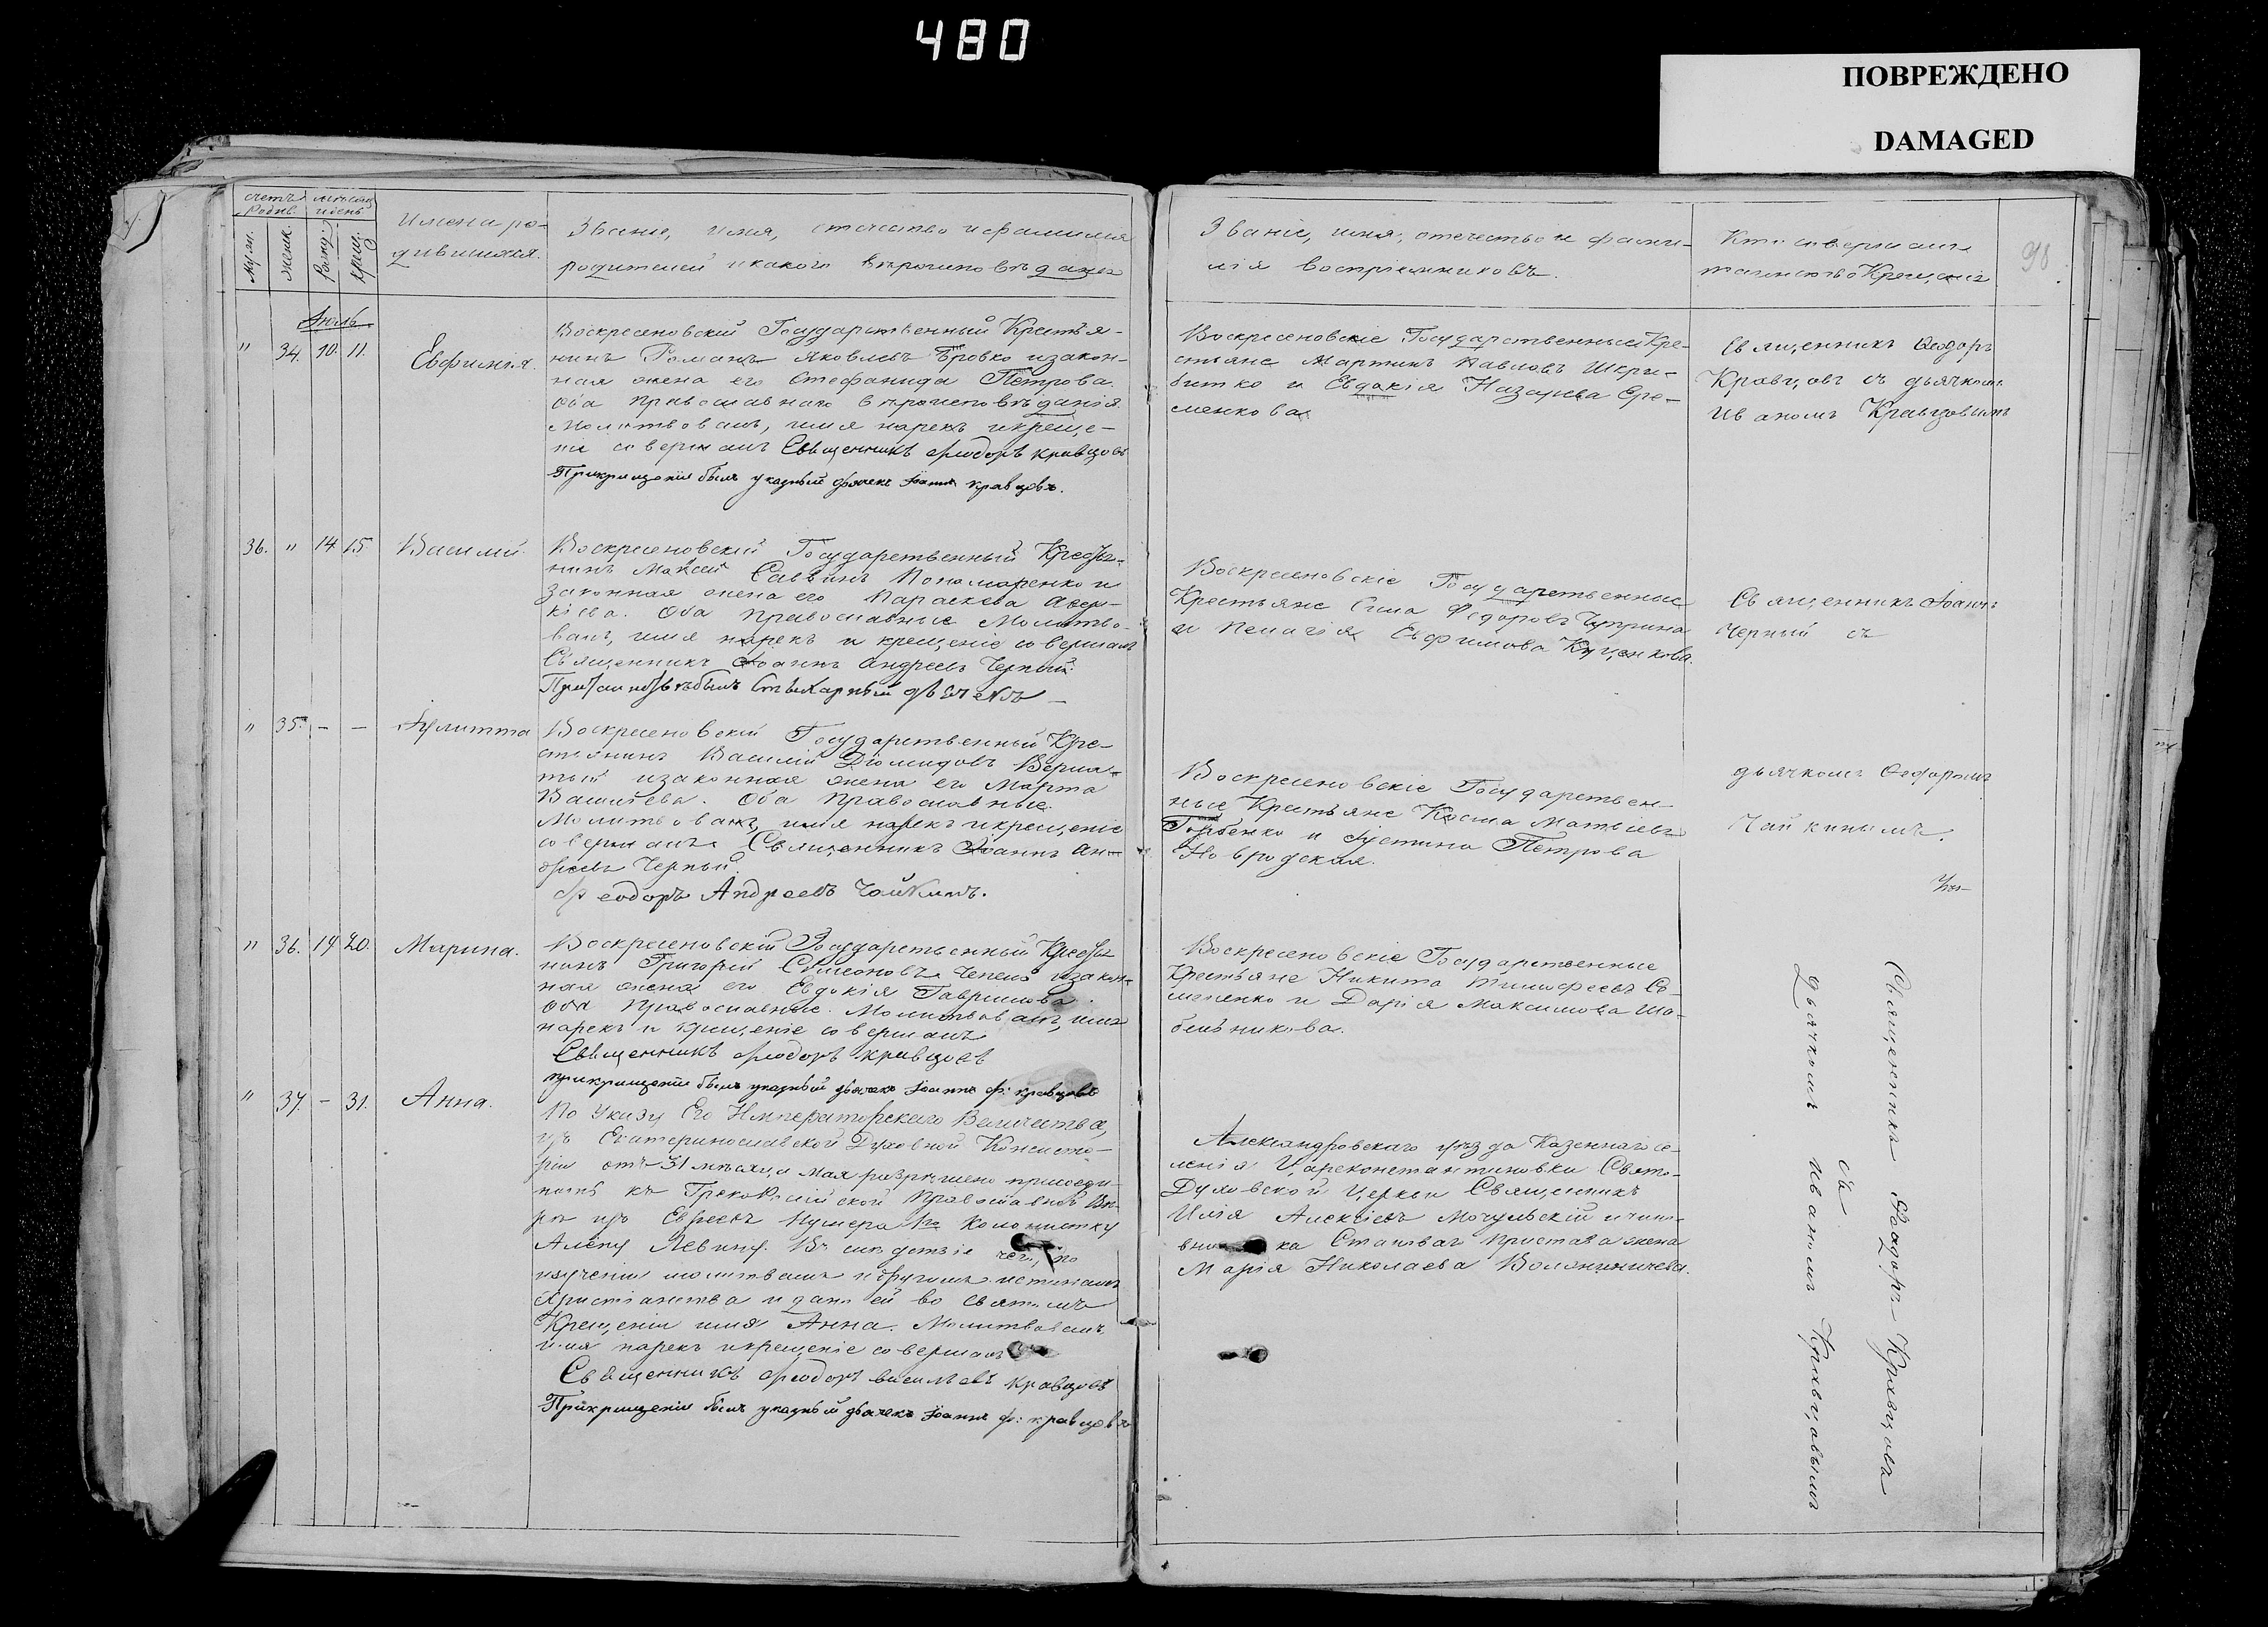 480
ПОВРЕЖДЕНО
DAMAGED
счетъ
родив.
мѣсяцъ
и день
муж.
женск.
рожд.
крещ.
Имена ро-
дившихся.
Званіе, имя, отечество и фамилія
родителей и какого вѣроисповѣданія
Званіе, имя, отечество и фами-
лія воспріемниковъ.
Кто совершалъ
таинство Крещенія
98
Іюль
" 34. 10. 11.
Евфимія.
Воскресеновскій Государственный Крестья-
нинъ Романъ Яковлевъ Бровко и закон-
ная жена его Стефанида Петрова.
Оба православнаго вѣроисповѣданія.
Молитвовалъ, имя нарекъ и креще-
ніе совершалъ Священникъ Феодоръ Кравцовъ
При крещеніи былъ указный дьячекъ Іоаннъ Кравцовъ.
Воскресеновскіе Государственные Кре-
стьяне Мартинъ Павловъ Шкри-
битко и Евдокія Назарьева Ере-
менкова.
Священникъ Ѳеодоръ
Кравцовъ съ дьячкомъ
Иваномъ Кравцовымъ
36. " 14 15.
Василій.
Воскресеновскій Государственный Крестья-
нинъ Саввинъ Пономаренко и
законная жена его Параскева Авер-
кіева. Оба православные Молитво-
валъ, имя нарекъ и крещеніе совершалъ
Священникъ Іоаннъ Андреевъ Черный.
былъ Стихарный дьячекъ
Воскресеновскіе Государственные
Крестьяне Сила Федоровъ Чуприна
и Пелагія Евфимова Куценкова.
Священникъ Іоаннъ
Черный съ
" 35. - -
Іулитта
Воскресеновскій Государственный Кре-
стьянинъ Василій Діомидовъ
и законная жена его Марта
Васильева. Оба православные.
Молитвовалъ, имя нарекъ и крещеніе
совершалъ Священникъ Іоаннъ Ан-
дреевъ Черный.
Феодоръ Андреевъ Чайкинъ.
Воскресеновскіе Государствен-
ные Крестьяне Косма Матвіевъ
Горбенко и Іустина Петрова
Новродская.
дьячкомъ Феодоромъ
Чайкинымъ.
" 36. 19 20.
Марина.
Воскресеновскій Государственный Крестья
нинъ Григорій Симеоновъ Чепель и закон-
ная жена его Евдокія Гаврилова.
Оба Православные. Молитвовалъ, имя
нарекъ и крещеніе совершалъ
Священникъ Феодоръ Кравцовъ
При крещеніи былъ указный дьячекъ Іоаннъ Ф: Кравцовъ
Воскресеновскіе Государственные
Крестьяне Никита Тимофеевъ Се-
мененко и Дарія Максимова Ша-
бельникова.
Священникъ Феодоръ Кравцовъ
съ
дьячкомъ Иваномъ Кравцовымъ
" 37. - 31.
Анна.
По Указу Его Императорскаго Величества,
изъ Екатеринославской Духовной Консисто-
ріи отъ 31 мѣсяца Мая разрешено присоеди-
нить къ Грекороссійской Православной Вѣ-
рѣ изъ Евреевъ Нумера колонистку
Алену Левину. Въ слѣдствіе чего, по
изученіи молитвамъ и другимъ истинамъ
Христіанства и дано ей во Святомъ
Крещеніи имя Анна. Молитвовалъ,
имя нарекъ и крещеніе совершалъ
Священникъ Феодоръ Васильевъ Кравцовъ
При крещеніи былъ указный дьячекъ Іоаннъ Ф: Кравцовъ
Александровскаго уѣзда Казеннаго се-
ленія Цареконстантиновки Свято-
Духовской Церкви Священникъ
Илія Алексіевъ Мочульскій и
Становаго пристава жена
Марія Николаева